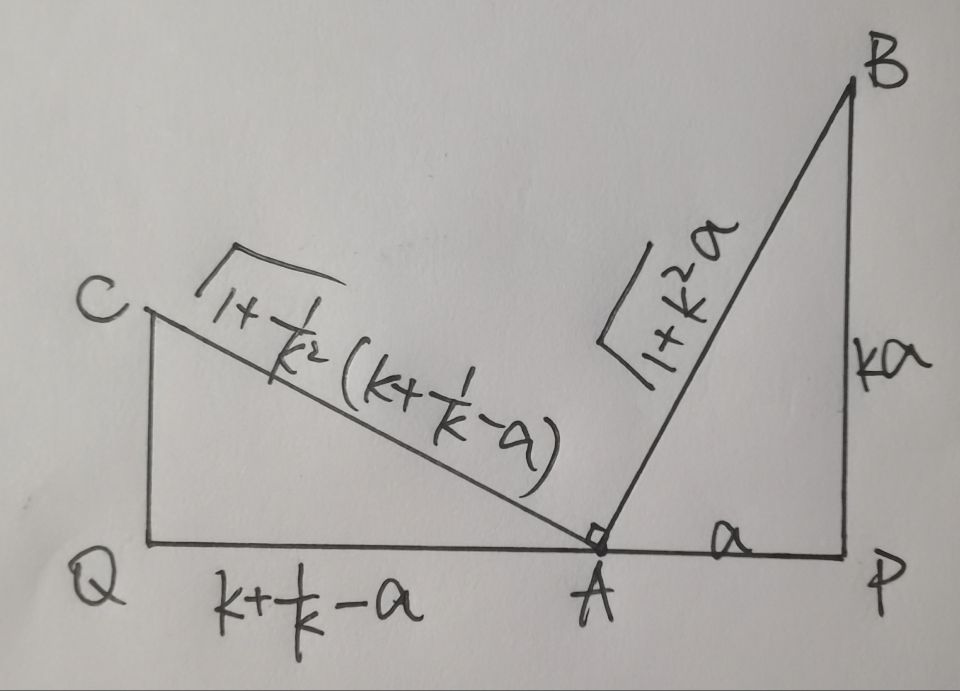 B
C
√1+1/k² (k+1/k-a)
√1+k² a
ka
a
Q
k+1/k-a
A
P